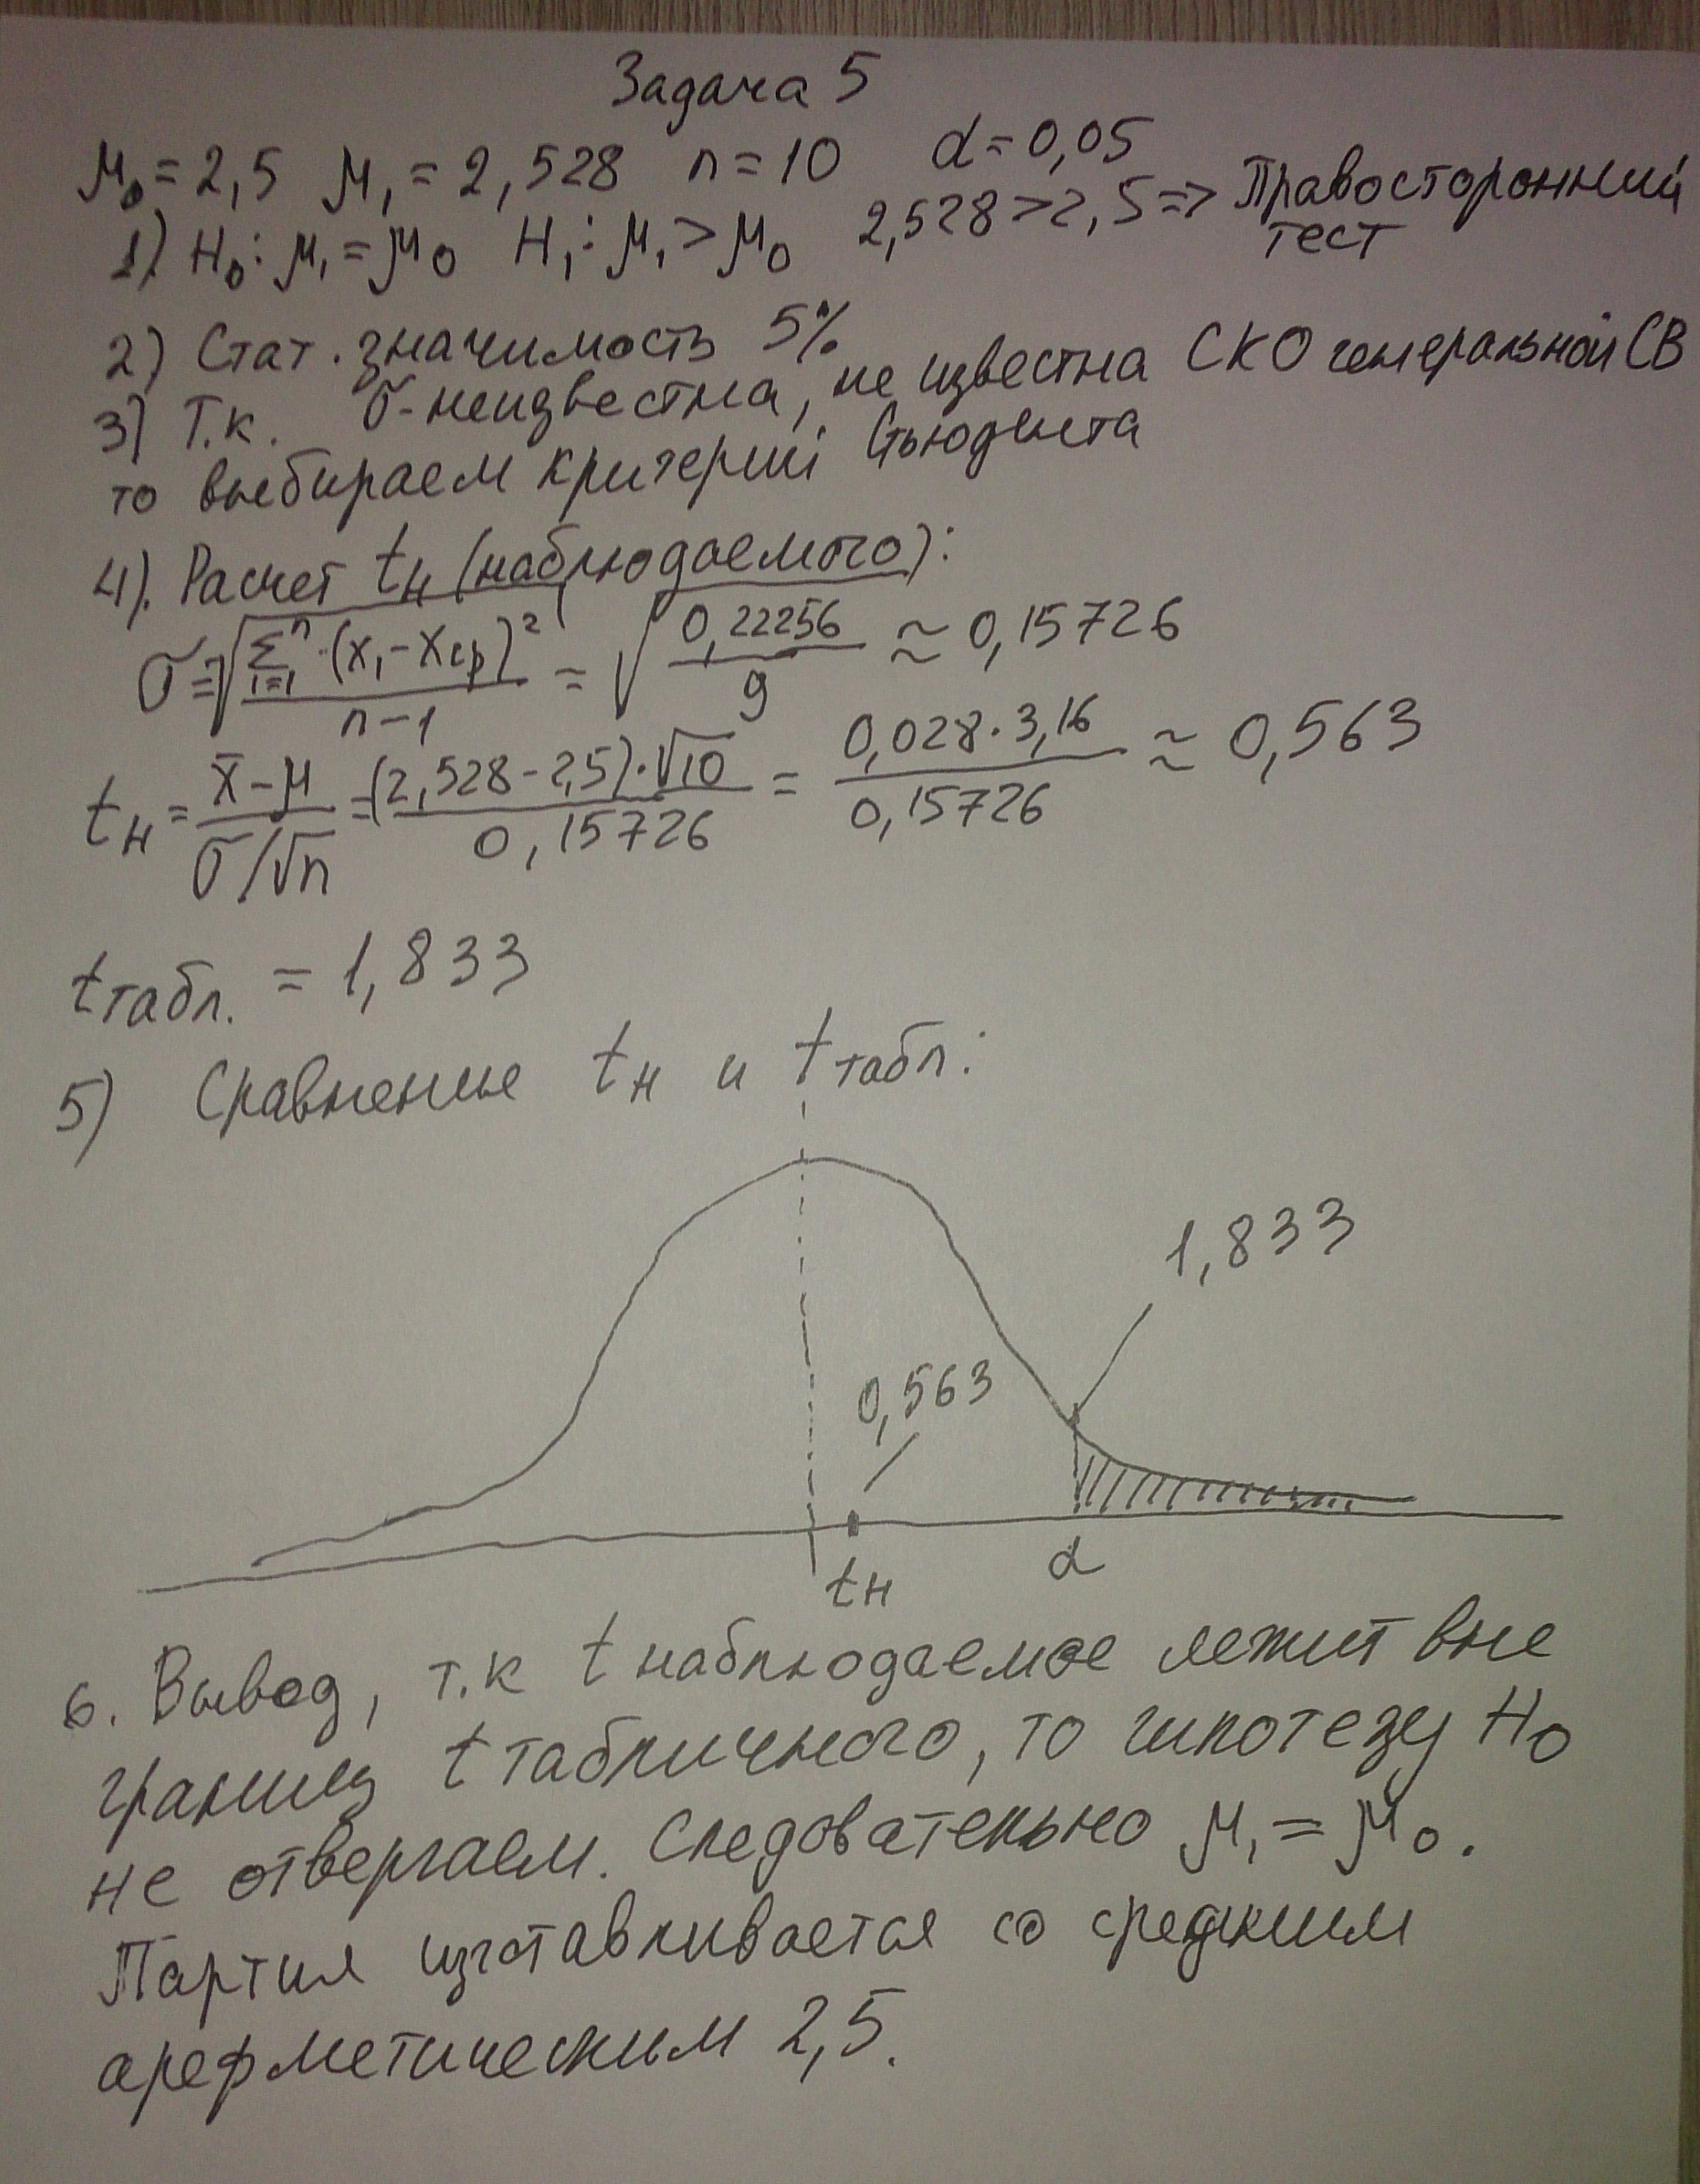 Задача 5
μ₀ = 2,5 μ₁ = 2,528 n = 10 α = 0,05
1) H₀: μ₁ = μ₀ H₁: μ₁ > μ₀ 2,528 > 2,5 => Правосторонний
тест
2) Стат. значимость 5%
3) Т.к. σ - неизвестна, не известна СКО генеральной СВ
то выбираем критерий Стьюдента
4). Расчет tн (наблюдаемого):
σ = √(Σⁿᵢ₌₁ (x₁ - xср)² / n-1) = √(0,22256 / 9) ≈ 0,15726
tн = (x̄ - μ) / (σ/√n) = (2,528 - 2,5)·√10 / 0,15726 = 0,028 · 3,16 / 0,15726 ≈ 0,563
tтабл. = 1,833
5) Сравнение tн и tтабл:
1,833
0,563
tн α
6. Вывод, т.к t наблюдаемое лежит вне
границ t табличного, то гипотезу H₀
не отвергаем. Следовательно μ₁ = μ₀.
Партия изготавливается со средним
арефметическим 2,5.